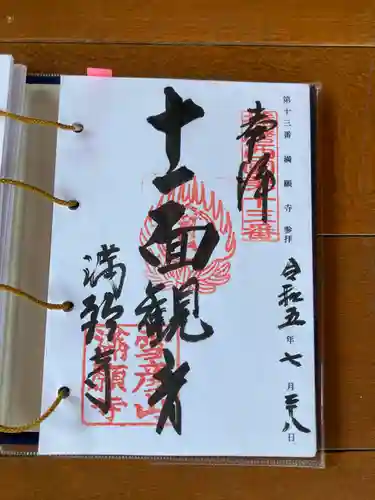 第十三番 満願寺 参拝
奉拝
十一面観音
満願寺
雪彦山
満願寺
令和五年七月廿八日